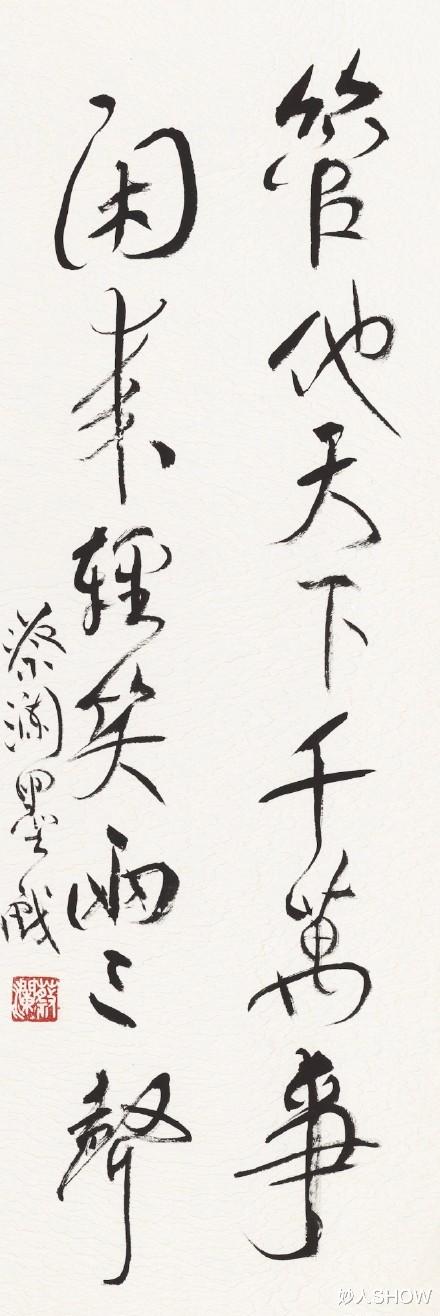 管他天下千萬事
闲来輕笑兩三聲
蔡瀾墨戲
蔡瀾
妙人SHOW